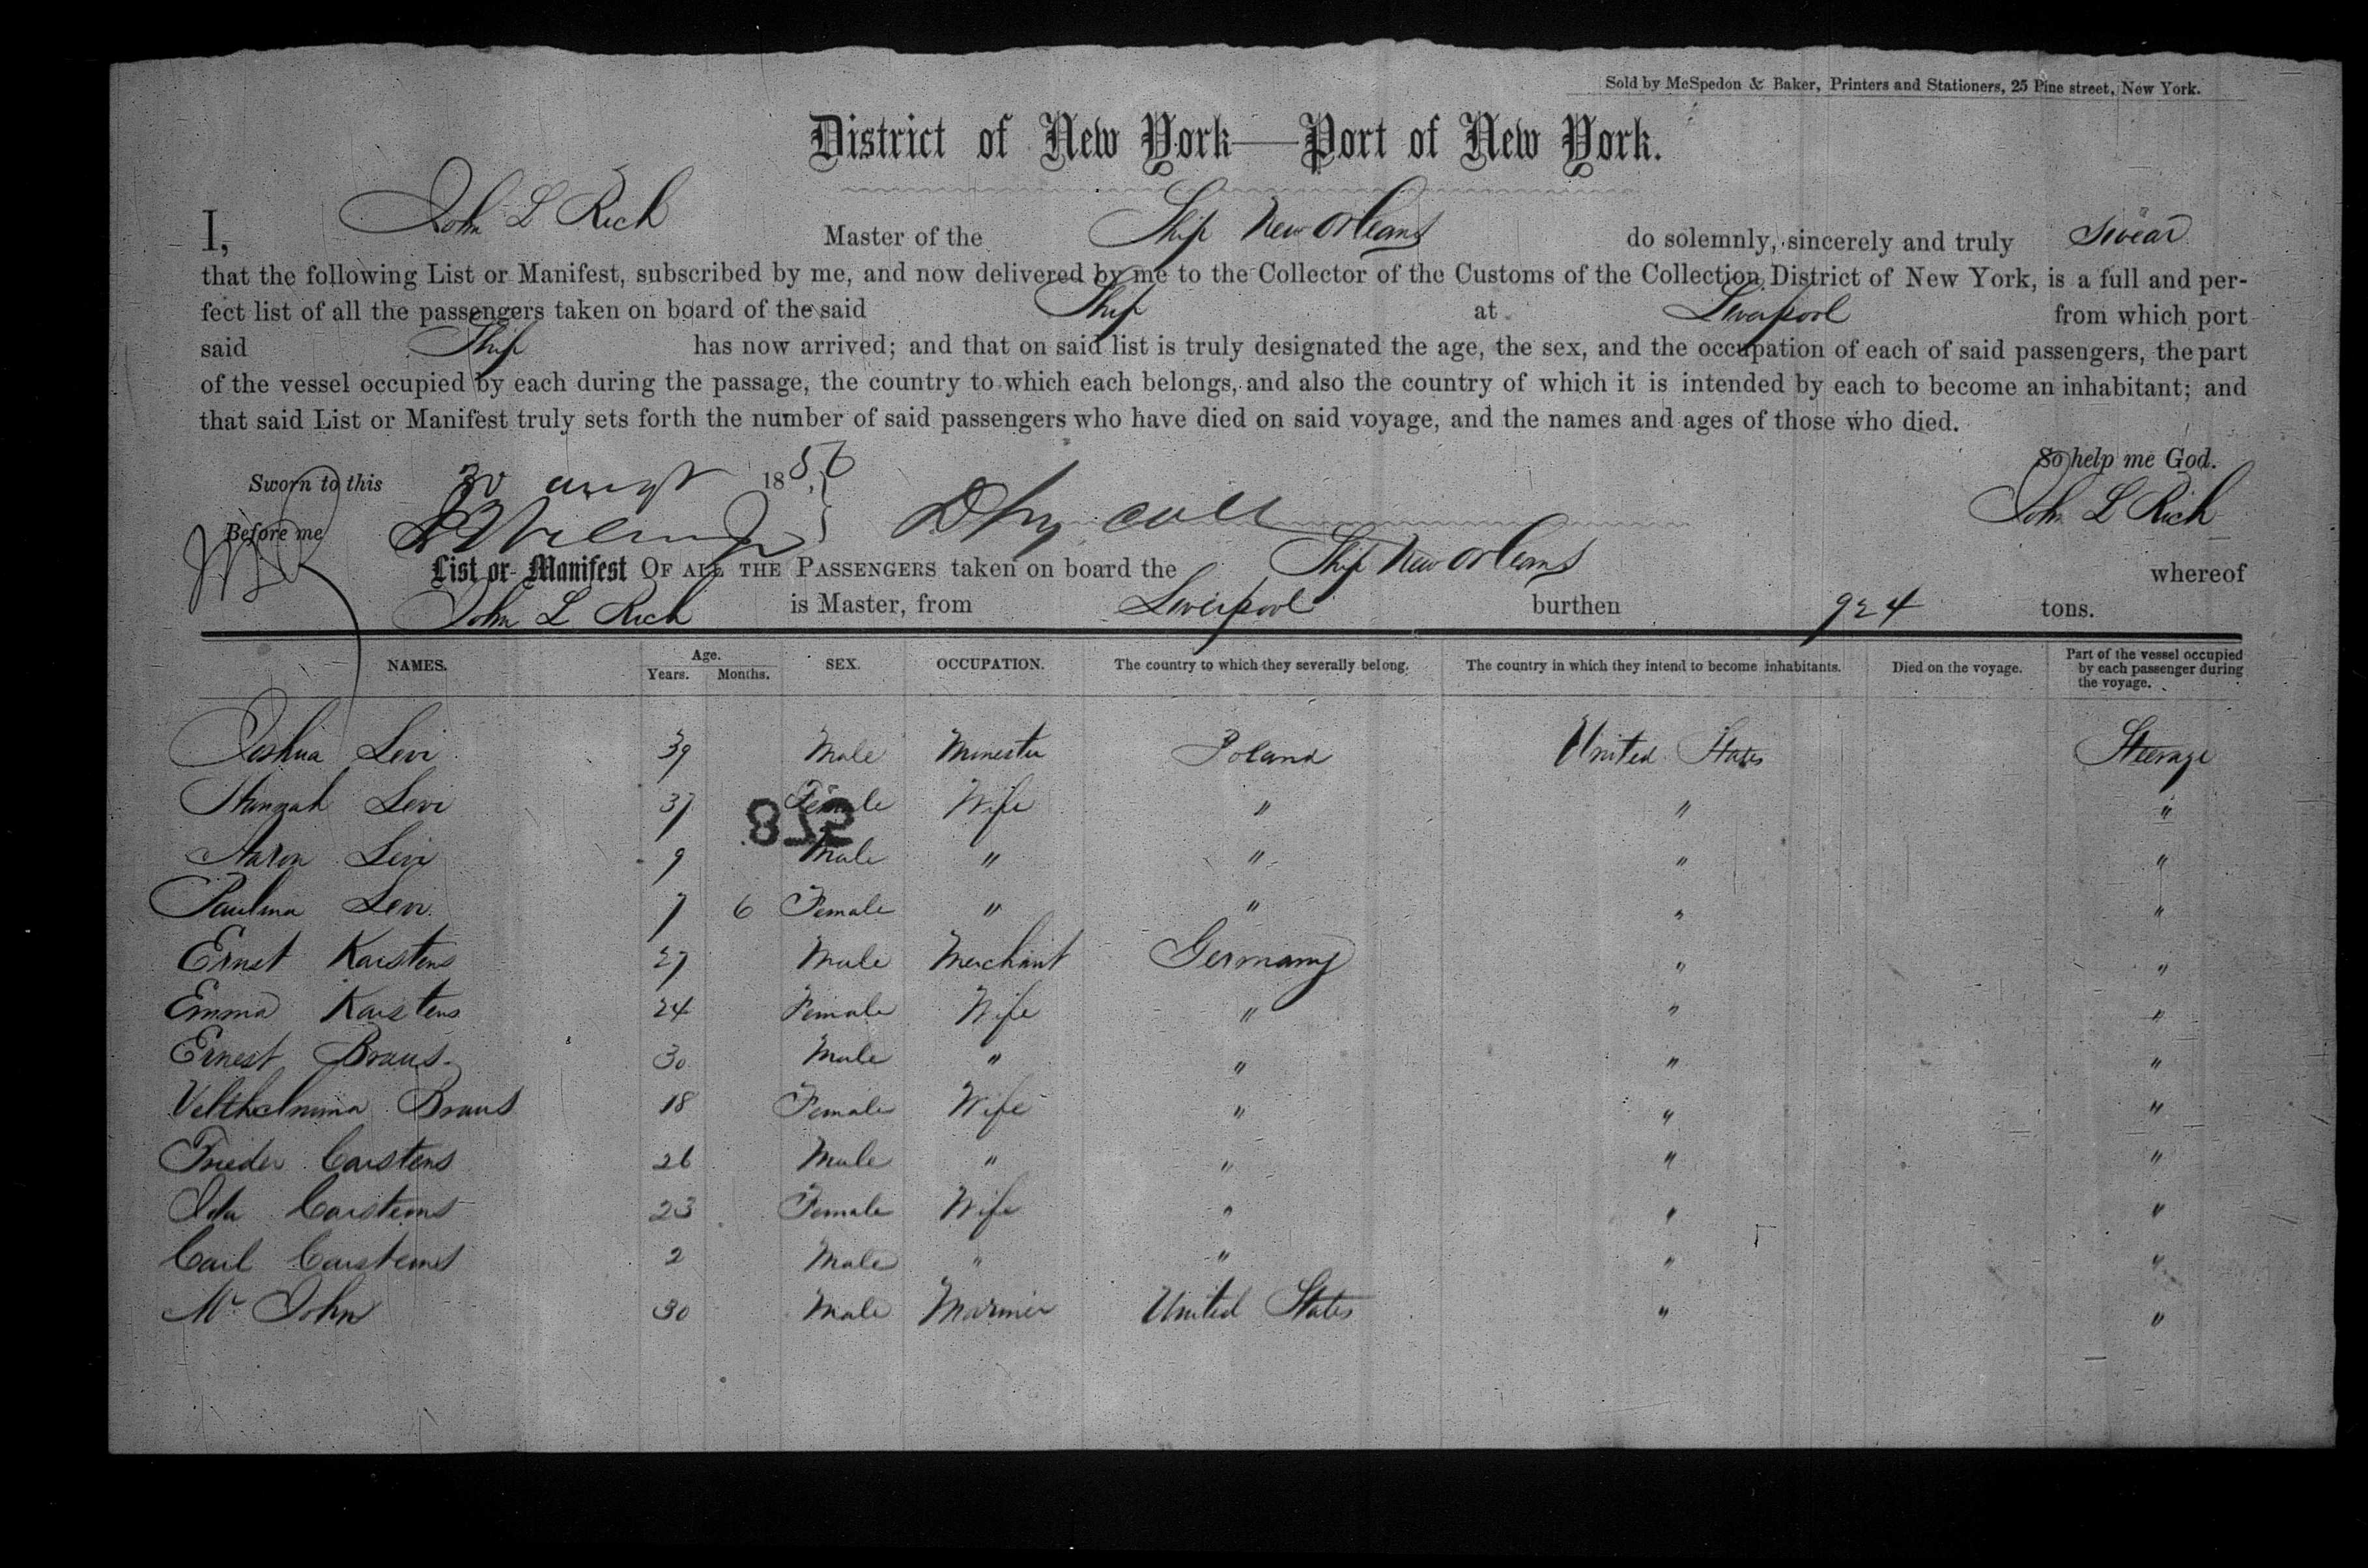 Sold by McSpedon & Baker, Printers and Stationers, 25 Pine street, New York.
District of New York—Port of New York.
I, John L Rich Master of the Ship New Orleans do solemnly, sincerely and truly swear
that the following List or Manifest, subscribed by me, and now delivered by me to the Collector of the Customs of the Collection District of New York, is a full and per-
fect list of all the passengers taken on board of the said Ship at Liverpool from which port
said Ship has now arrived; and that on said list is truly designated the age, the sex, and the occupation of each of said passengers, the part
of the vessel occupied by each during the passage, the country to which each belongs, and also the country of which it is intended by each to become an inhabitant; and
that said List or Manifest truly sets forth the number of said passengers who have died on said voyage, and the names and ages of those who died.
So help me God.
Sworn to this 30 1856
John L Rich
Before me
List or Manifest OF ALL THE PASSENGERS taken on board the Ship New Orleans whereof
John L Rich is Master, from Liverpool burthen 924 tons.
NAMES. Age. Years. Months. SEX. OCCUPATION. The country to which they severally belong. The country in which they intend to become inhabitants. Died on the voyage. Part of the vessel occupied by each passenger during the voyage.
Joshua Levi 39 Male Minester Poland United States Steerage
Hannah Levi 37 Female Wife " " "
528
Aaron Levi 9 Male " " " "
Paulina Levi 7 6 Female " " " "
Ernst Karstens 27 Male Merchant Germany " "
Emma Karstens 24 Female Wife " " "
Ernest Braus 30 Male " " " "
Velthelmina Braus 18 Female Wife " " "
Frieder Carstens 26 Male " " " "
Ida Carstens 23 Female Wife " " "
Carl Carstens 2 Male " " " "
Mr John 30 Male Mariner United States " "